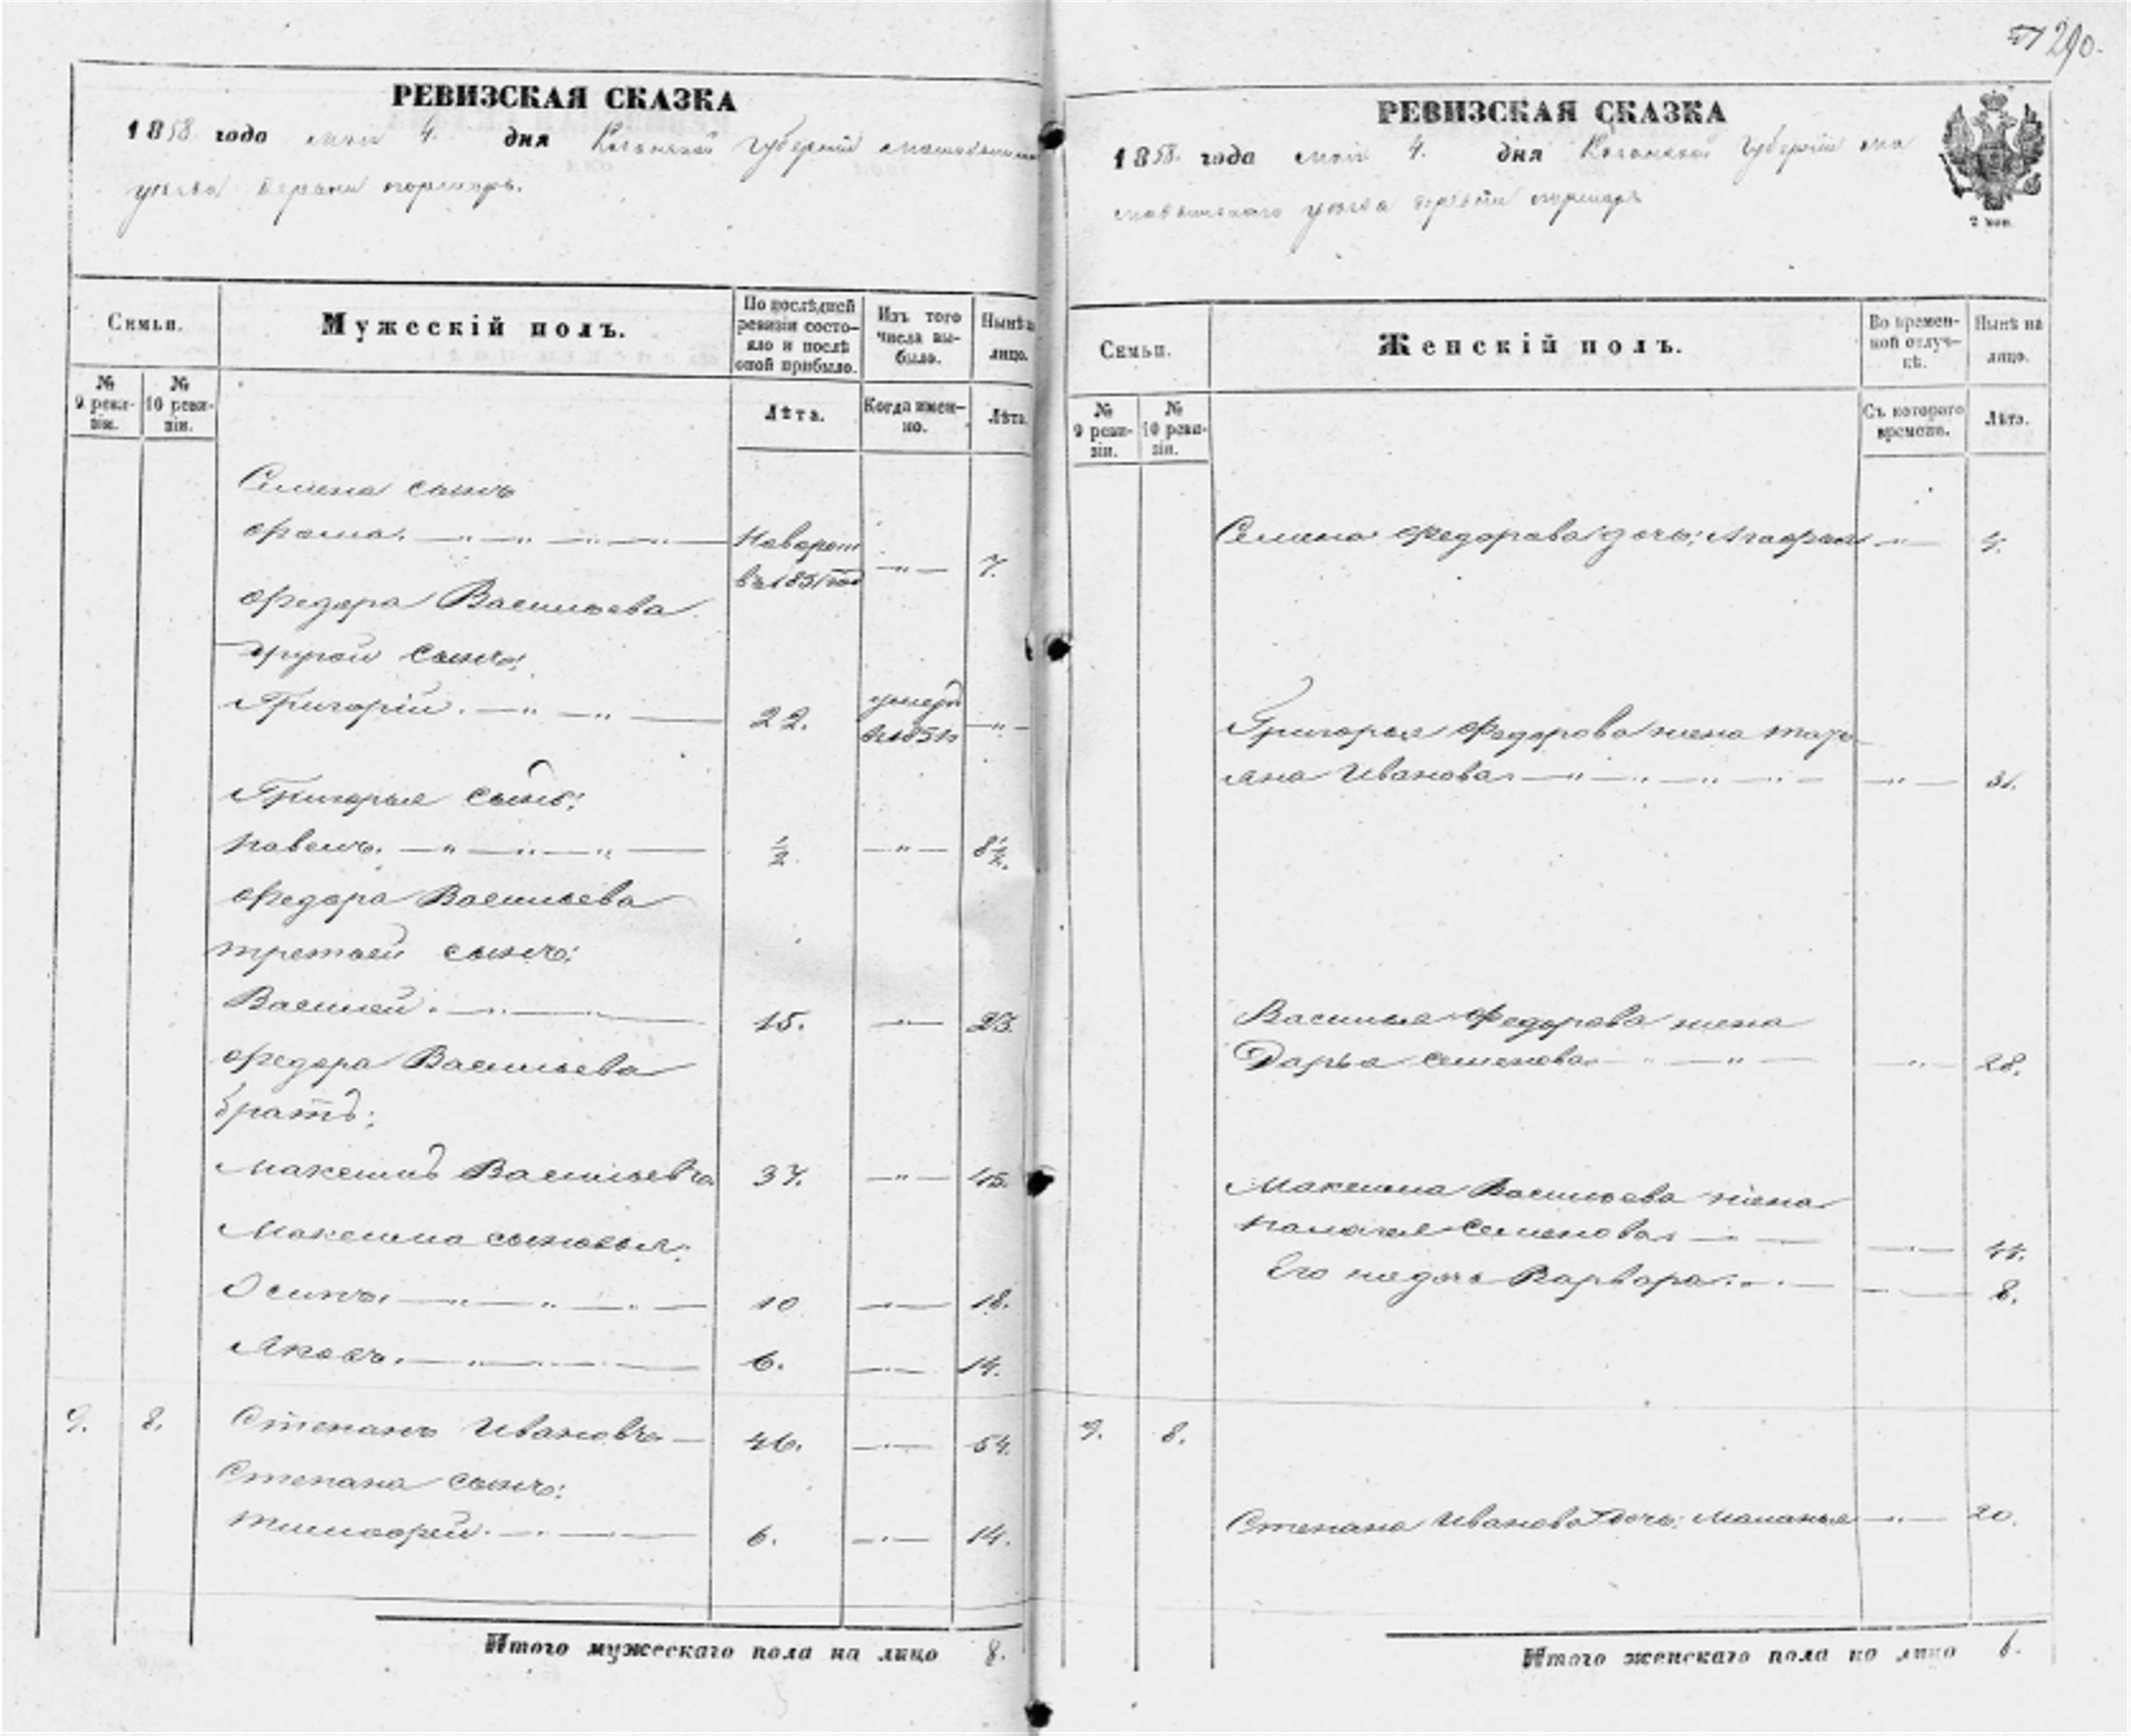 290.
РЕВИЗСКАЯ СКАЗКА
1858 года мая 4. дня Казанской Губерніи
уезда деревни
Семьи.
Мужескій полъ.
По послѣдней ревизіи состояло и послѣ оной прибыло.
Изъ того числа выбыло.
Нынѣ на лицо.
№ 9 ревизіи.
№ 10 ревизіи.
Лѣта.
Когда именно.
Лѣта.
Семена сынъ
Фома. Новорож 7.
въ 1851 год
Федора Васильева
другой сынъ:
Григорій. 22. умеръ
Григорья сынъ:
Павелъ. ½ 8½.
Федора Васильева
третьей сынъ:
Василей. 15. 23.
Федора Васильева
братъ:
Максимъ Васильевъ 37. 45.
Максима сыновья:
Осипъ. 10 18.
Яковъ. 6. 14.
9. 8. Степанъ Ивановъ 46. 54.
Степана сынъ:
Тимофей. 6. 14.
Итого мужескаго пола на лицо 8.
РЕВИЗСКАЯ СКАЗКА
1858 года мая 4. дня Казанской Губерніи ма
мадышскаго уезда деревни
2 коп.
Семьи.
Женскій полъ.
Во временной отлучкѣ.
Нынѣ на лицо.
№ 9 ревизіи.
№ 10 ревизіи.
Съ котораго времени.
Лѣта.
Семена Федорова дочь: Агафья 4.
Григорья Федорова жена Тать
яна Иванова 31.
Василья Федорова жена
Дарья Семенова 28.
Максима Васильева жена
Палагея Семенова 44.
Его же дочь Варвара: 8.
9. 8.
Степана Иванова дочь: Маланья 20.
Итого женскаго пола на лицо 6.